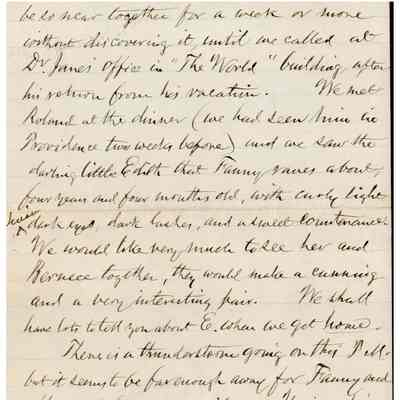 be so near together for a week or more
without discovering it, until we called at
Dr Janes' office in "The World" building after
his return from his vacation. We met
Roland at the dinner (we had seen him in
Providence two weeks before) and we saw the
darling little Edith that Fanny raves about,
four years and four months old, with curly light
dark eyes, dark lashes, and a sweet countenance.
We would like very much to see her and
Bernece together, they would make a cunning
and a very interesting pair. We shall
have lots to tell you about E. when we get home.
There is a thunderstorm going on this P.M.
but it seems to be far enough away for Fanny and